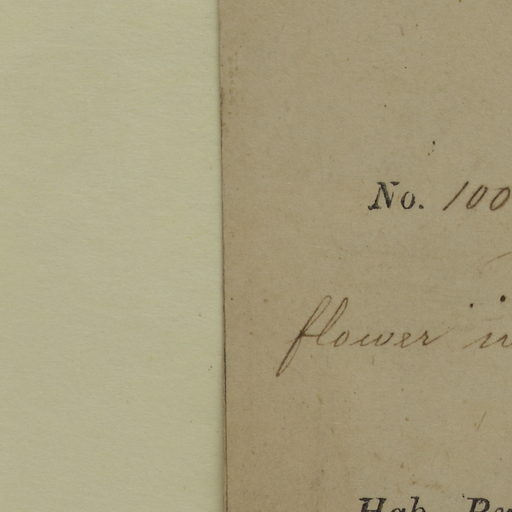 No. 100
flower in
Hab.